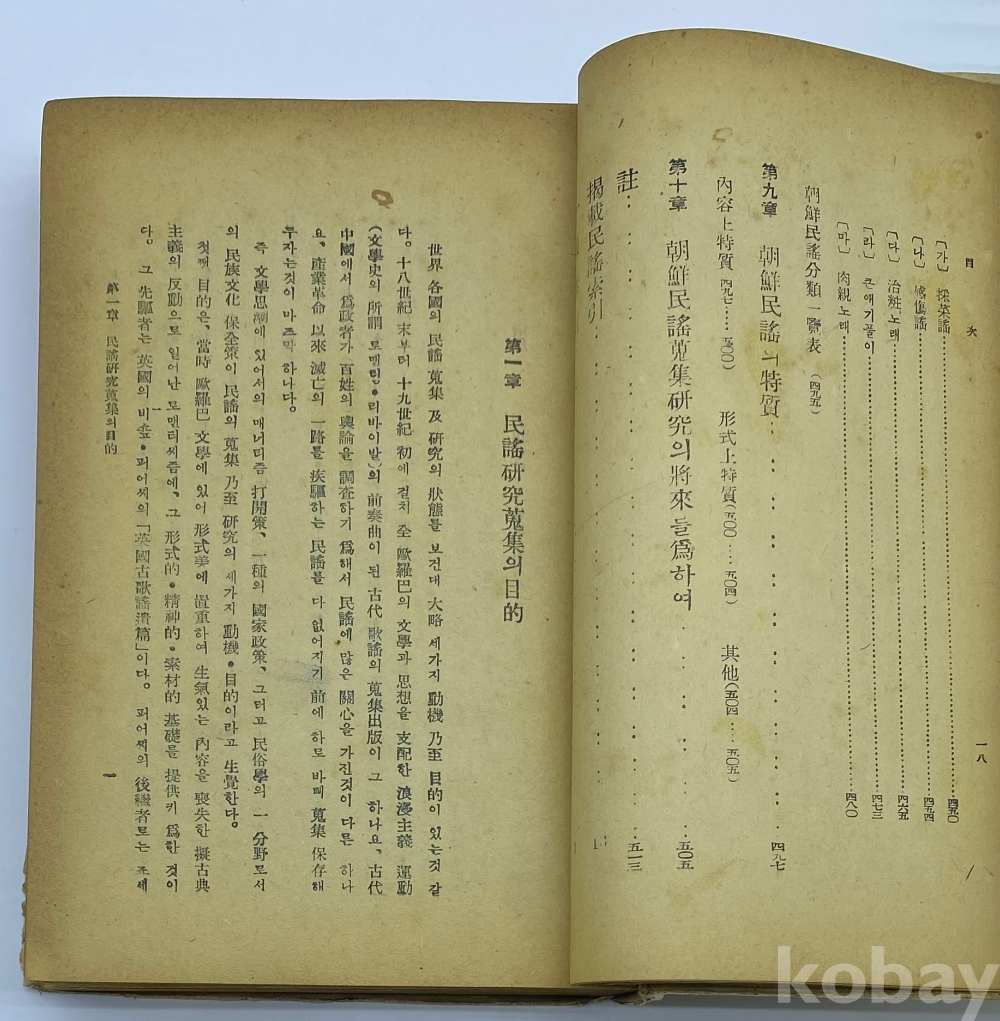 目次
一八
[가] 採菜謠 四五〇
[나] 感傷謠 四五四
[다] 治粧노래 四六五
[라] 큰애기풀이 四七三
[마] 肉親노래 四八〇
朝鮮民謠分類一覽表 (四九五)
第九章 朝鮮民謠의 特質 四九七
內容上特質(四九七……五〇〇) 形式上特質(五〇〇……五〇四) 其他(五〇四……五〇五)
第十章 朝鮮民謠蒐集硏究의 將來를 爲하여 五〇五
註 五一三
揭載民謠索引
第一章 民謠硏究蒐集의 目的
世界 各國의 民謠 蒐集 及 硏究의 狀態를 보건대 大略 세가지 動機 乃至 目的이 있는것 같
다。十八世紀 末부터 十九世紀 初에 걸처 全 歐羅巴의 文學과 思想을 支配한 浪漫主義 運動
(文學史의 所謂 로맨틱・리바이발)의 前奏曲이 된 古代 歌謠의 蒐集出版이 그 하나요、古代
中國에서 爲政者가 百姓의 輿論을 調査하기 爲해서 民謠에 많은 關心을 가진것이 다른 하나
요、産業革命 以來 滅亡의 一路를 疾驅하는 民謠를 다 없어지기 前에 하로 바삐 蒐集 保存해
두자는것이 마즈막 하나다。
즉 文學思潮에 있어서의 매너리즘 打開策、一種의 國家政策、그러고 民俗學의 一分野로서
의 民族文化 保全策이 民謠의 蒐集 乃至 硏究의 세가지 動機・目的이라고 生覺한다。
첫째 目的은、當時 歐羅巴 文學에 있어 形式美에 置重하여 生氣있는 內容을 喪失한 擬古典
主義의 反動으로 일어난 로맨티씨즘에、그 形式的・精神的・素材的 基礎를 提供키 爲한 것이
다。그 先驅者는 英國의 비숖・퍼어씨의「英國古歌謠潰篇」이다。퍼어찌의 後繼者로는 쪼세
第一章 民謠硏究蒐集의 目的
一
kobay